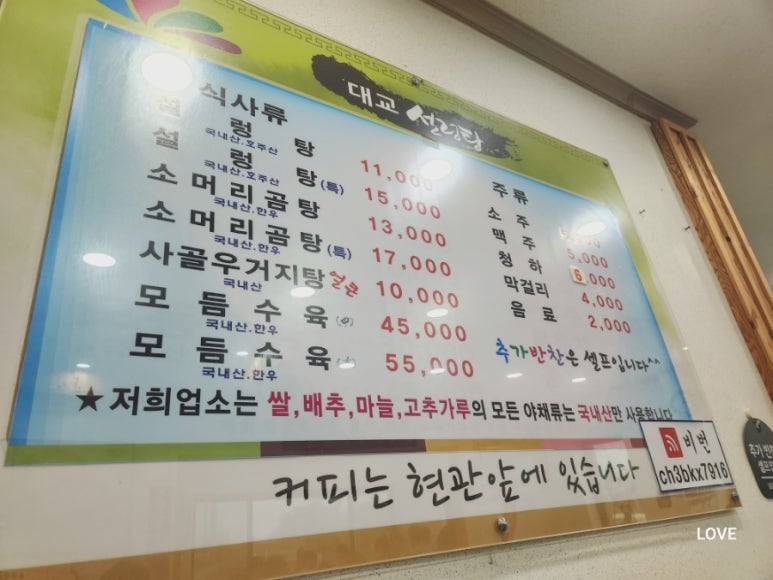 대교 설렁탕
식사류
설렁탕 11,000
국내산.호주산
설렁탕(특) 15,000
국내산.호주산
소머리곰탕 13,000
국내산.한우
소머리곰탕(특) 17,000
국내산.한우
사골우거지탕 얼큰 10,000
국내산
모듬수육 45,000
국내산.한우
모듬수육 55,000
국내산.한우
주류
소주
맥주 5,000
청하 6,000
막걸리 4,000
음료 2,000
추가반찬은 셀프입니다^^
★저희업소는 쌀,배추,마늘,고추가루의 모든 야채류는 국내산만 사용합니다
커피는 현관앞에 있습니다
비번
ch3bkx7916
LOVE